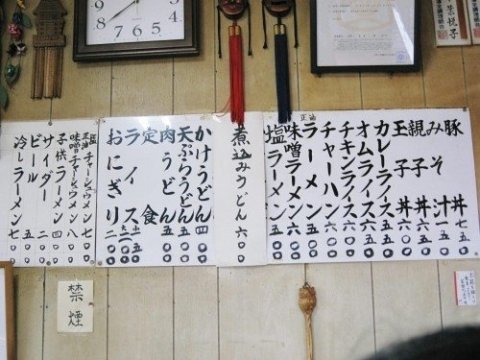 豚丼 七五〇
みそ汁 一五〇
親子丼 六五〇
玉子丼 六〇〇
カレーライス 六五〇
オムライス 六五〇
チキンライス 六五〇
チャーハン 六〇〇
正油
ラーメン 五五〇
味噌ラーメン 六〇〇
塩ラーメン 五五〇
煮込みうどん 六〇〇
かけうどん 四〇〇
天ぷらうどん 五五〇
肉うどん 五五〇
定食
ライス
おにぎり 二〇〇
塩
正油 チャーシューメン 七〇〇
味噌チャーシューメン 八〇〇
子供ラーメン 四〇〇
サイダー 二〇〇
ビール 五〇〇
冷しラーメン 七〇〇
禁煙